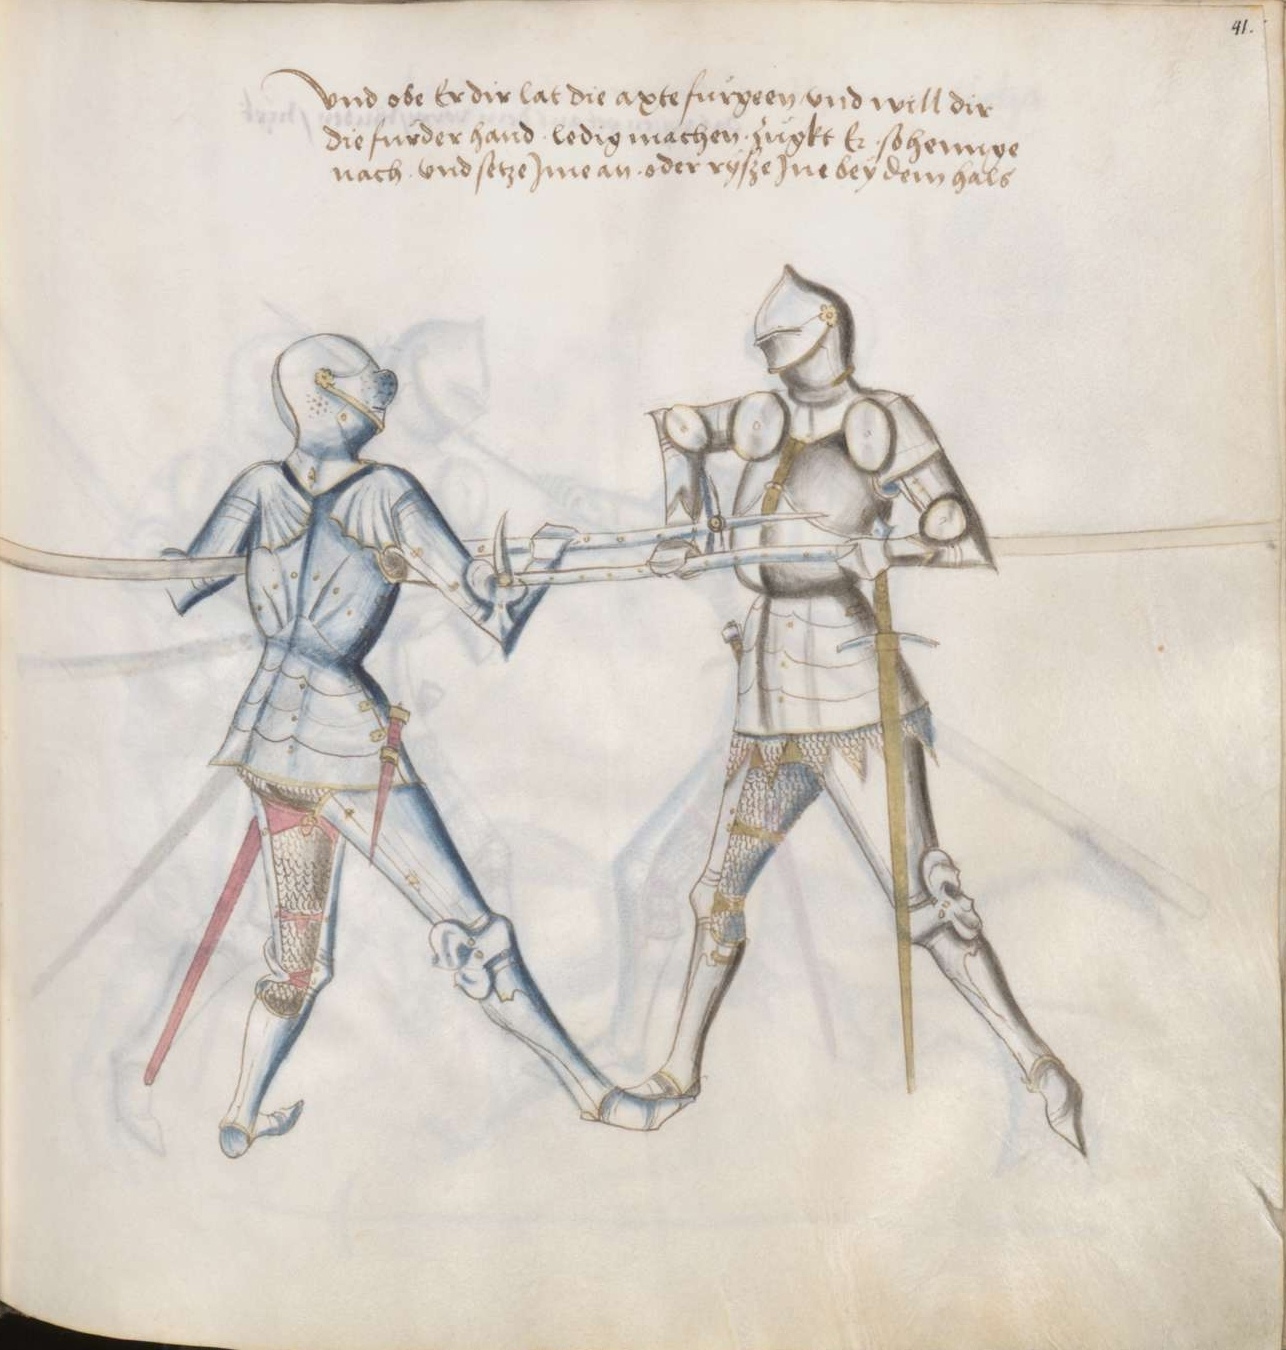 41.
Vnd obe Er dir lat die axte furgeen vnd will dir
die furder hand · ledig machen · zugkt Er · so henng
nach · vnd setze Jme an · oder rysze Jne bey dem hals